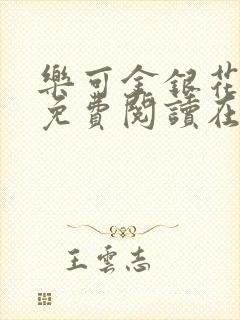 樂可金銀花
免費閱讀在
王雲志